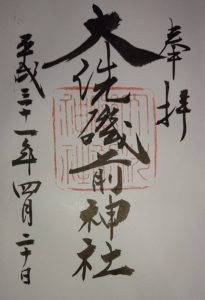 奉拝
大洗磯前神社
平成三十一年四月二十日